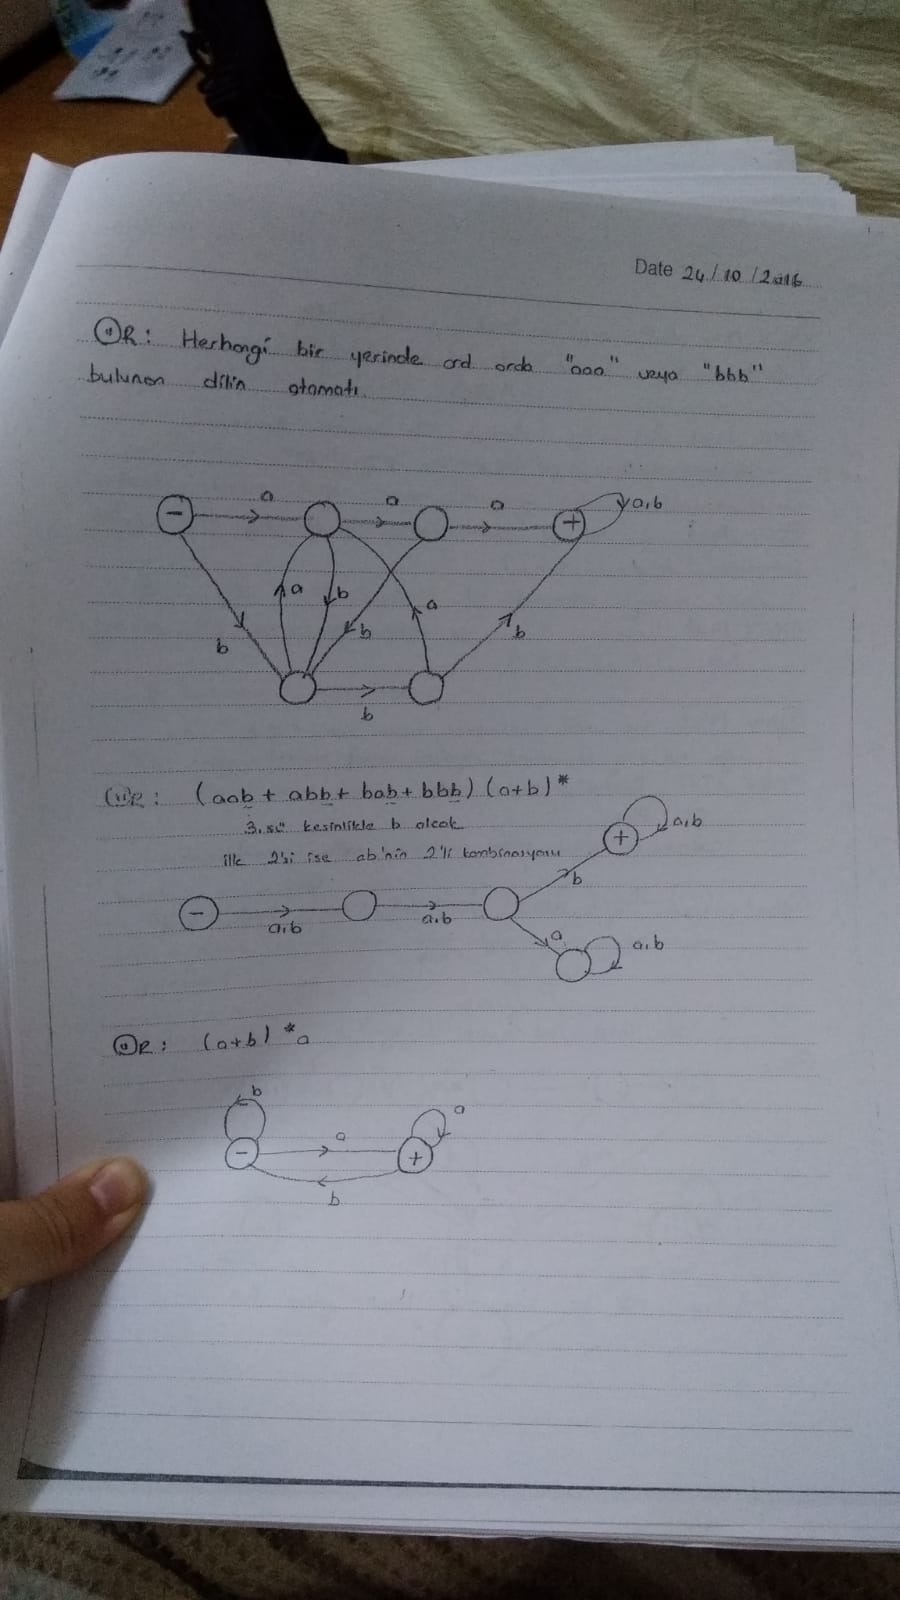 Date 24/10/2016
ÖR: Herhangi bir yerinde ard arda "aaa" veya "bbb"
bulunan dilin otomatı.
a
a
a
a,b
a
b
b
a
b
b
b
ÖR: (aab + abb + bab + bbb) (a+b)*
3.sü kesinlikle b olcak
ilk 2'si ise ab'nin 2'li kombinasyonu
a,b
b
a,b
a,b
a
a,b
ÖR: (a+b)*a
b
a
a
b